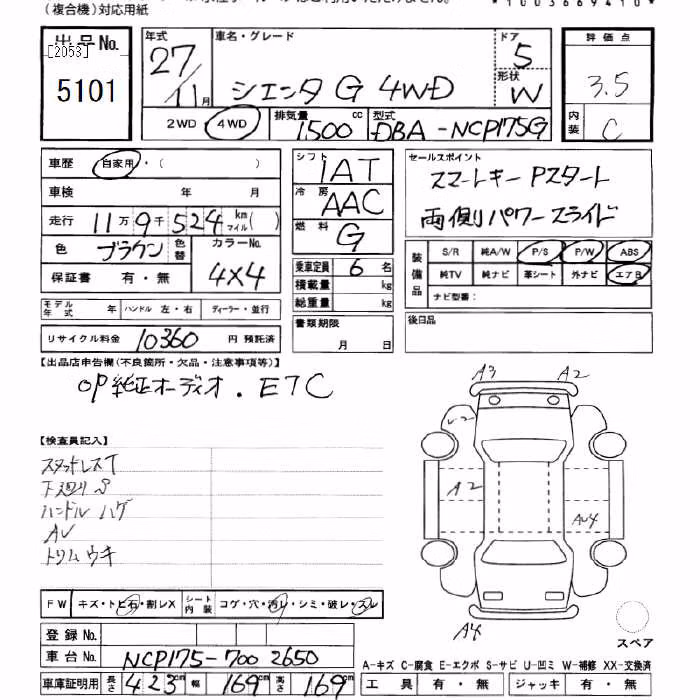 (複合機)対応用紙
*1003669410*
出品No.
[2053]
5101
年式
27/11月
車名・グレード
シエンタ G 4WD
ドア
5
形状
W
2WD 4WD
排気量
1500cc
型式
DBA-NCP175G
評価点
3.5
内装
C
車歴 自家用・( )
車検 年 月
走行 11万9千524 km マイル( )
色 ブラウン 色替 カラーNo. 4X4
保証書 有・無
モデル年式 年 ハンドル 左・右 ディーラー・並行
リサイクル料金 10360 円 預託済
シフト IAT
冷房 AAC
燃料 G
乗車定員 6 名
積載量 kg
総重量 kg
書類期限
月 日
セールスポイント
スマートキー Pスタート
両側パワースライド
装備品
S/R 純A/W P/S P/W ABS
純TV 純ナビ 革シート 外ナビ エアB
ナビ型番:
後日品
【出品店申告欄(不良箇所・欠品・注意事項等)】
OP純正オーディオ. ETC
【検査員記入】
スタッドレスT
下廻りS
ハンドル ハゲ
AV
トリムウキ
A3 A2
A2
AU4
A4
スペア
FW キズ・トビ石・割レX
シート内装 コゲ・穴・汚レ・シミ・破レ・スレ
登録No.
車台No. NCP175-7002650
車庫証明用 長さ 423cm 幅 169cm 高さ 169cm
A-キズ C-腐食 E-エクボ S-サビ U-凹ミ W-補修 XX-交換済
工具 有・無 ジャッキ 有・無